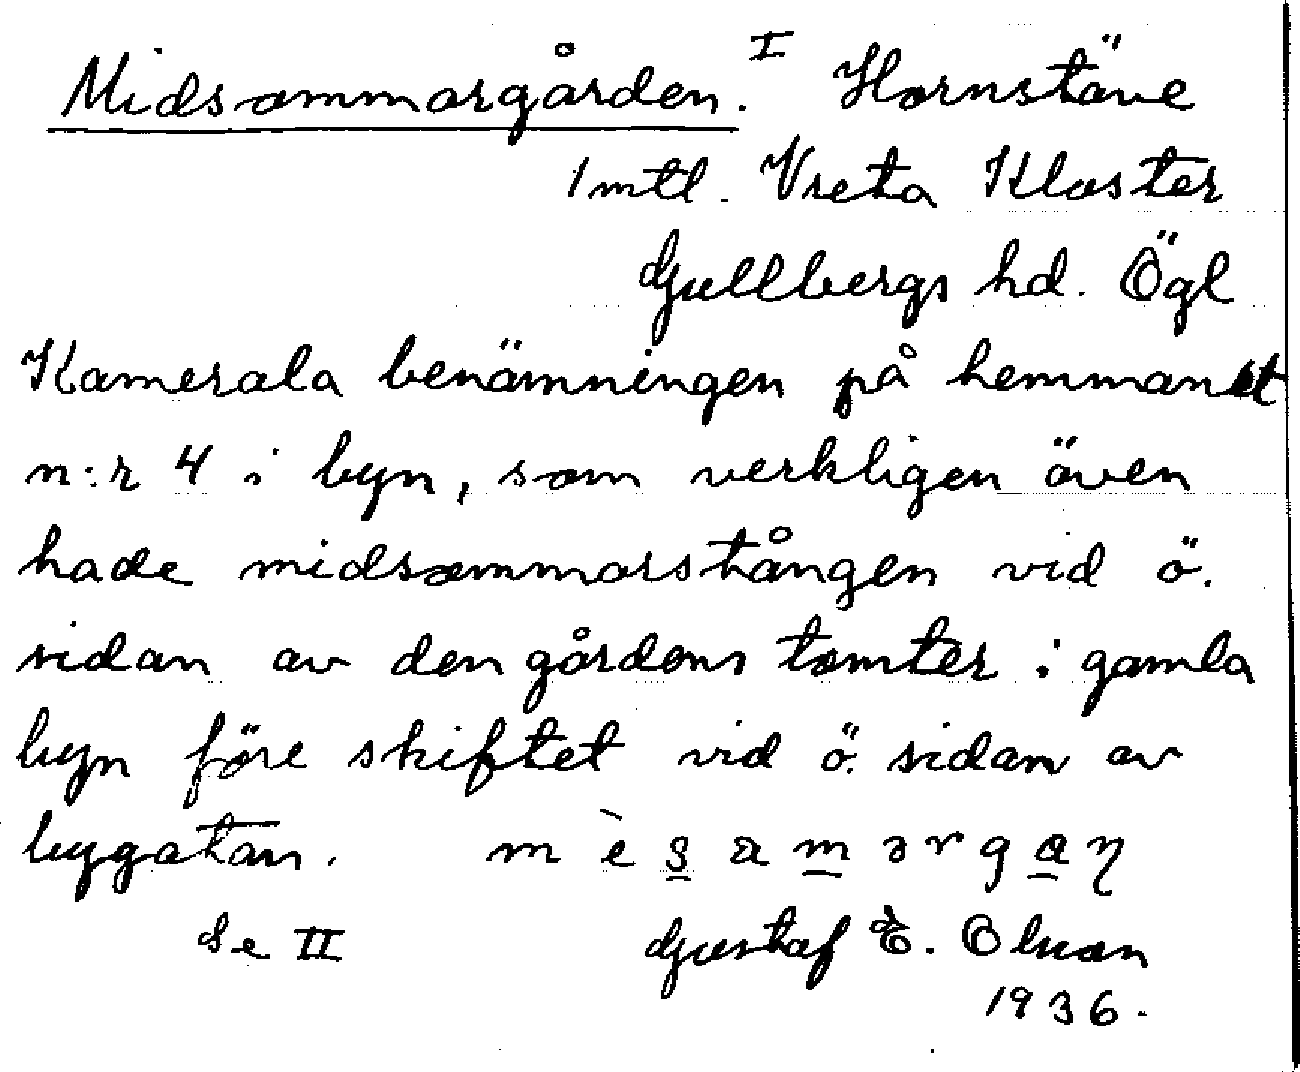 Midsommorgården. I Hornstäve
1 mtl. Vreta Kloster
Gullbergs hd. Ögl
Kamerala benämningen på hemmanet
n:r 4 i byn, som verkligen även
hade midsommorstången vid ö.
sidan av den gårdens tomter i gamla
byn före skiftet vid ö. sidan av
bygatan. m è s a m ə r g a η
Se II Gustaf E. Olson
1936.